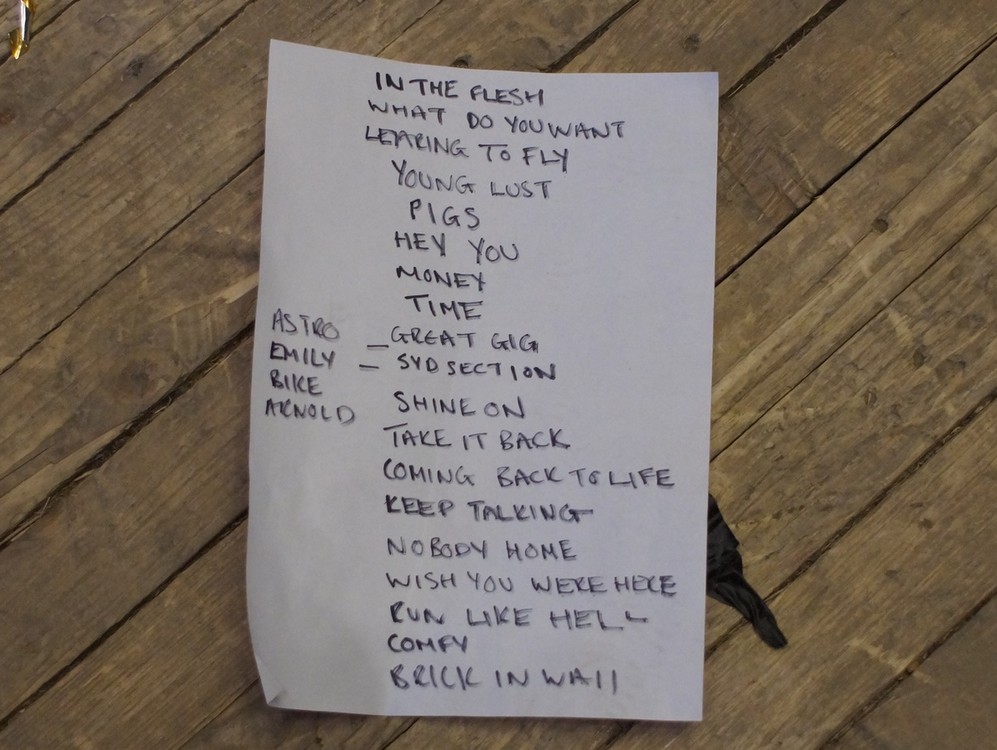 IN THE FLESH
WHAT DO YOU WANT
LEARING TO FLY
YOUNG LUST
PIGS
HEY YOU
MONEY
TIME
ASTRO
_GREAT GIG
EMILY
_ SYD SECTION
BIKE
ARNOLD
SHINE ON
TAKE IT BACK
COMING BACK TO LIFE
KEEP TALKING
NOBODY HOME
WISH YOU WERE HERE
RUN LIKE HELL
COMFY
BRICK IN WAll